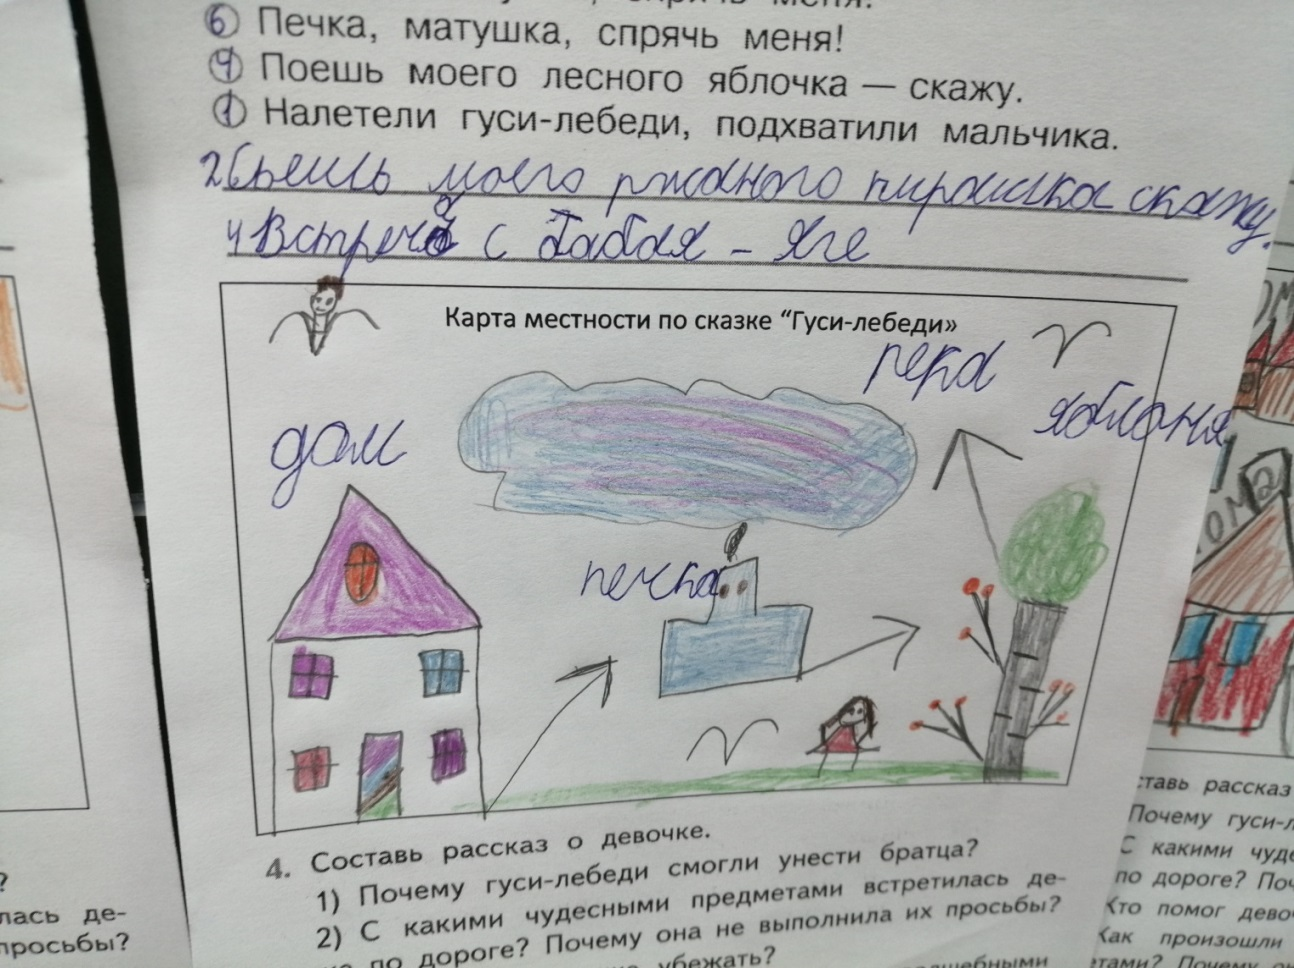 меня!
6 Печка, матушка, спрячь меня!
4 Поешь моего лесного яблочка — скажу.
1 Налетели гуси-лебеди, подхватили мальчика.
2 Съешь моего ржаного пирошка скажу.
4 Встреча с бабая - Яге
Карта местности по сказке “Гуси-лебеди»
река
яблоня
дом
печка
4. Составь рассказ о девочке.
1) Почему гуси-лебеди смогли унести братца?
2) С какими чудесными предметами встретилась де-
по дороге? Почему она не выполнила их просьбы?
убежать?
лась де-
просьбы?
ставь рассказ
Почему гуси-л
С какими чуде
по дороге? Поч
Кто помог дево
Как произошли